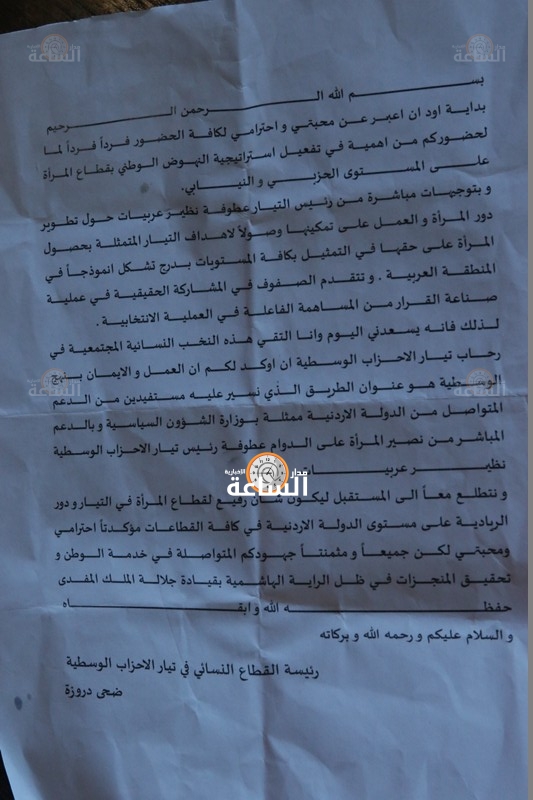 مدار
الساعة
مدار
الساعة
بســـم الله الـــرحمن الـــرحيم
بداية اود ان اعبر عن محبتي و احترامي لكافة الحضور فرداً فرداً لما
لحضوركم من اهمية في تفعيل استراتيجية النهوض الوطني بقطاع المرأة
على المستوى الحزبي و النيابي.
و بتوجيهات مباشرة من رئيس التيار عطوفة نظير عربيات حول تطوير
دور المرأة و العمل على تمكينها وصولاً لاهداف التيار المتمثلة بحصول
المرأة على حقها في التمثيل بكافة المستويات بدرج تشكل انموذجاً في
المنطقة العربية . و تتقدم الصفوف في المشاركة الحقيقية في عملية
صناعة القرار من المساهمة الفاعلة في العملية الانتخابية .
لذلك فانه يسعدني اليوم وانا التقي هذه النخب النسائية المجتمعية في
رحاب تيار الاحزاب الوسطية ان اوكد لكم ان العمل و الايمان بنهج
الوسطية هو عنوان الطريق الذي نسير عليه مستفيدين من الدعم
المتواصل من الدولة الاردنية ممثلة بوزارة الشؤون السياسية و بالدعم
المباشر من نصير المرأة على الدوام عطوفة رئيس تيار الاحزاب الوسطية
نظير عربيا
مدار الإخبارية
الساعة
و نتطلع معاً الى المستقبل ليكون شأن رفيع لقطاع المرأة في التيار و دور
الريادية على مستوى الدولة الاردنية في كافة القطاعات مؤكدتاً احترامي
ومحبتي لكن جميعاً و مثمنتاً جهودكم المتواصلة في خدمة الوطن و
تحقيق المنجزات في ظل الراية الهاشمية بقيادة جلالة الملك المفدى
حفظـــه الله و ابقـــاه
و السلام عليكم و رحمه الله و بركاته
رئيسة القطاع النسائي في تيار الاحزاب الوسطية
ضحى دروزة